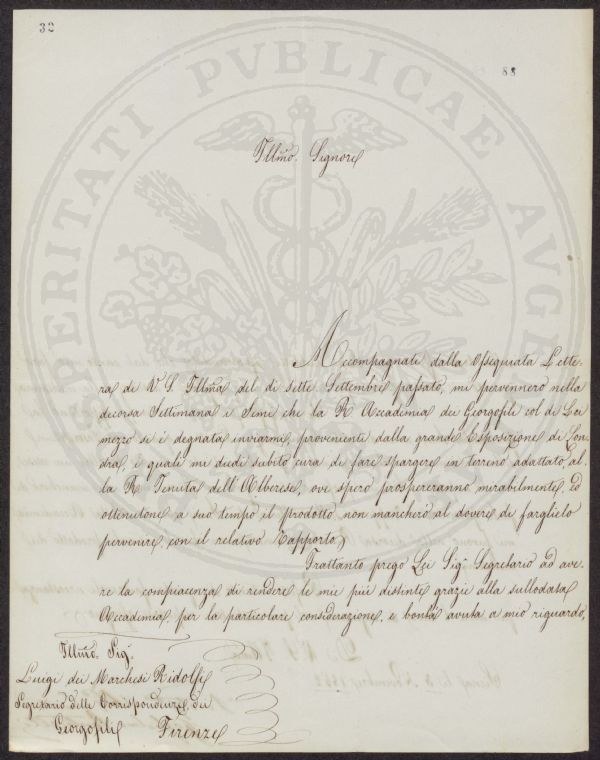 32
88
Illmo. Signore
Accompagnati dalla Ossequiata Lette-
ra di V S Illma del di sette Settembre passato, mi pervennero nella
decorsa Settimana i Semi che la R Accademia dei Georgofili col di Lei
mezzo si è degnata inviarmi, provenienti dalla grande Esposizione di Lon-
dra, i quali mi diedi subito cura di fare spargere in terreno adattato al-
la R Tenuta dell'Alberese, ove spero prospereranno mirabilmente, ed
ottenutone a suo tempo il prodotto, non mancherò al dovere di farglielo
pervenire, con il relativo Rapporto
Trattanto prego Lei Sigr Segretario ad ave-
re la compiacenza di rendere le mie più distinte grazie alla sullodata
Accademia, per la particolare considerazione, e bontà avuta a mio riguardo,
Illmo. Sigr.
Luigi dei Marchesi Ridolfi
Segretario delle Corrispondenze dei
Georgofili Firenze
PROSPERITATI PVBLICAE AVGENDAE